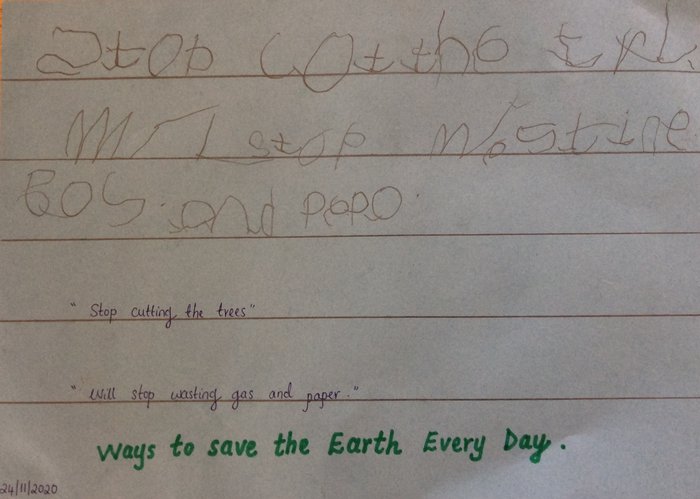 Stop cotthe trl.
Will stop wostine
gos. and pepo.
" Stop cutting the trees"
" Will stop wasting gas and paper."
Ways to save the Earth Every Day.
24/11/2020